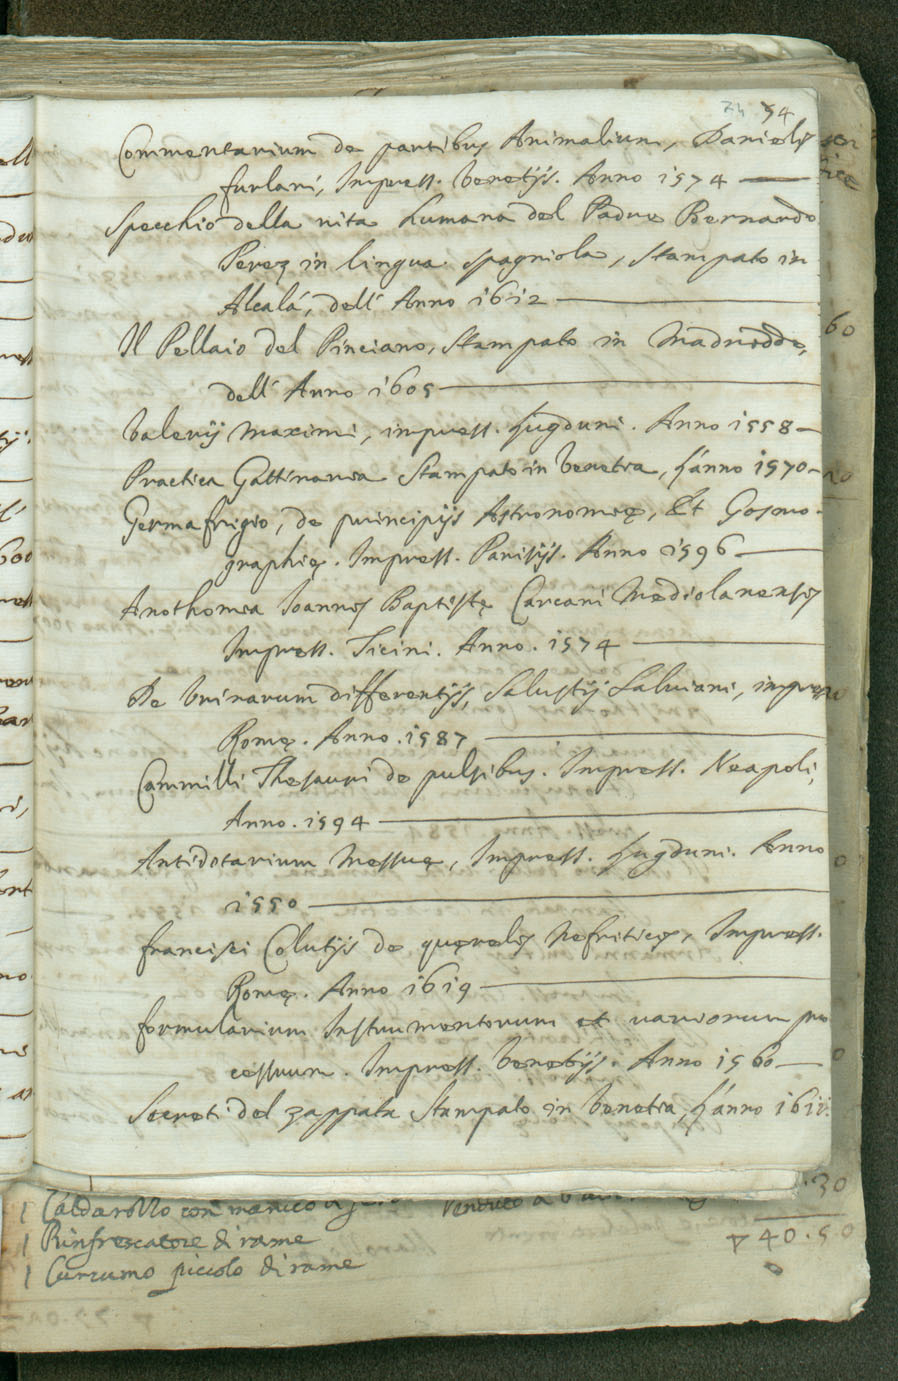 74 54
Commentarium de partibus Animalium, Danielis
furlani, Impress. Venetijs. Anno 1574
Specchio della vita humana del Padre Bernardo
Perez in lingua spagniola, stampato in
Alcalá, dell' Anno 1612
Il Pellaio del Pinciano, stampato in Madridde,
dell' Anno 1605
Valerij Maximi, impress. Lugduni. Anno 1558
Practica Gattinaria stampato in Venetia, l'anno 1570
Gemafrigio, de principijs Astronomię, Et Cosmo-
graphię. Impress. Parisijs. Anno 1596
Anothomia Ioannis Baptistę Carcani Mediolanensis
Impress. Ticini. Anno. 1574
De Vrinarum differentijs, Salustij Salviani, impress
Romę. Anno. 1587
Cammilli Thesauri de pulsibus. Impress. Neapoli,
Anno. 1594
Antidotarium Messuę, Impress. Lugduni. Anno
1550
francisci Colutijs de quęrelis Nefriticis, Impress.
Romę. Anno 1619
formularium Instrumentorum et variorum pro
cessuum. Impress. Venetijs. Anno 1560
Secreti del zappata stampato in Venetia, l'anno 1611.
60
30
1 Caldarozzo con manico di
1 Rinfrescatore di rame
40.50
1 Cucumo piccolo di rame